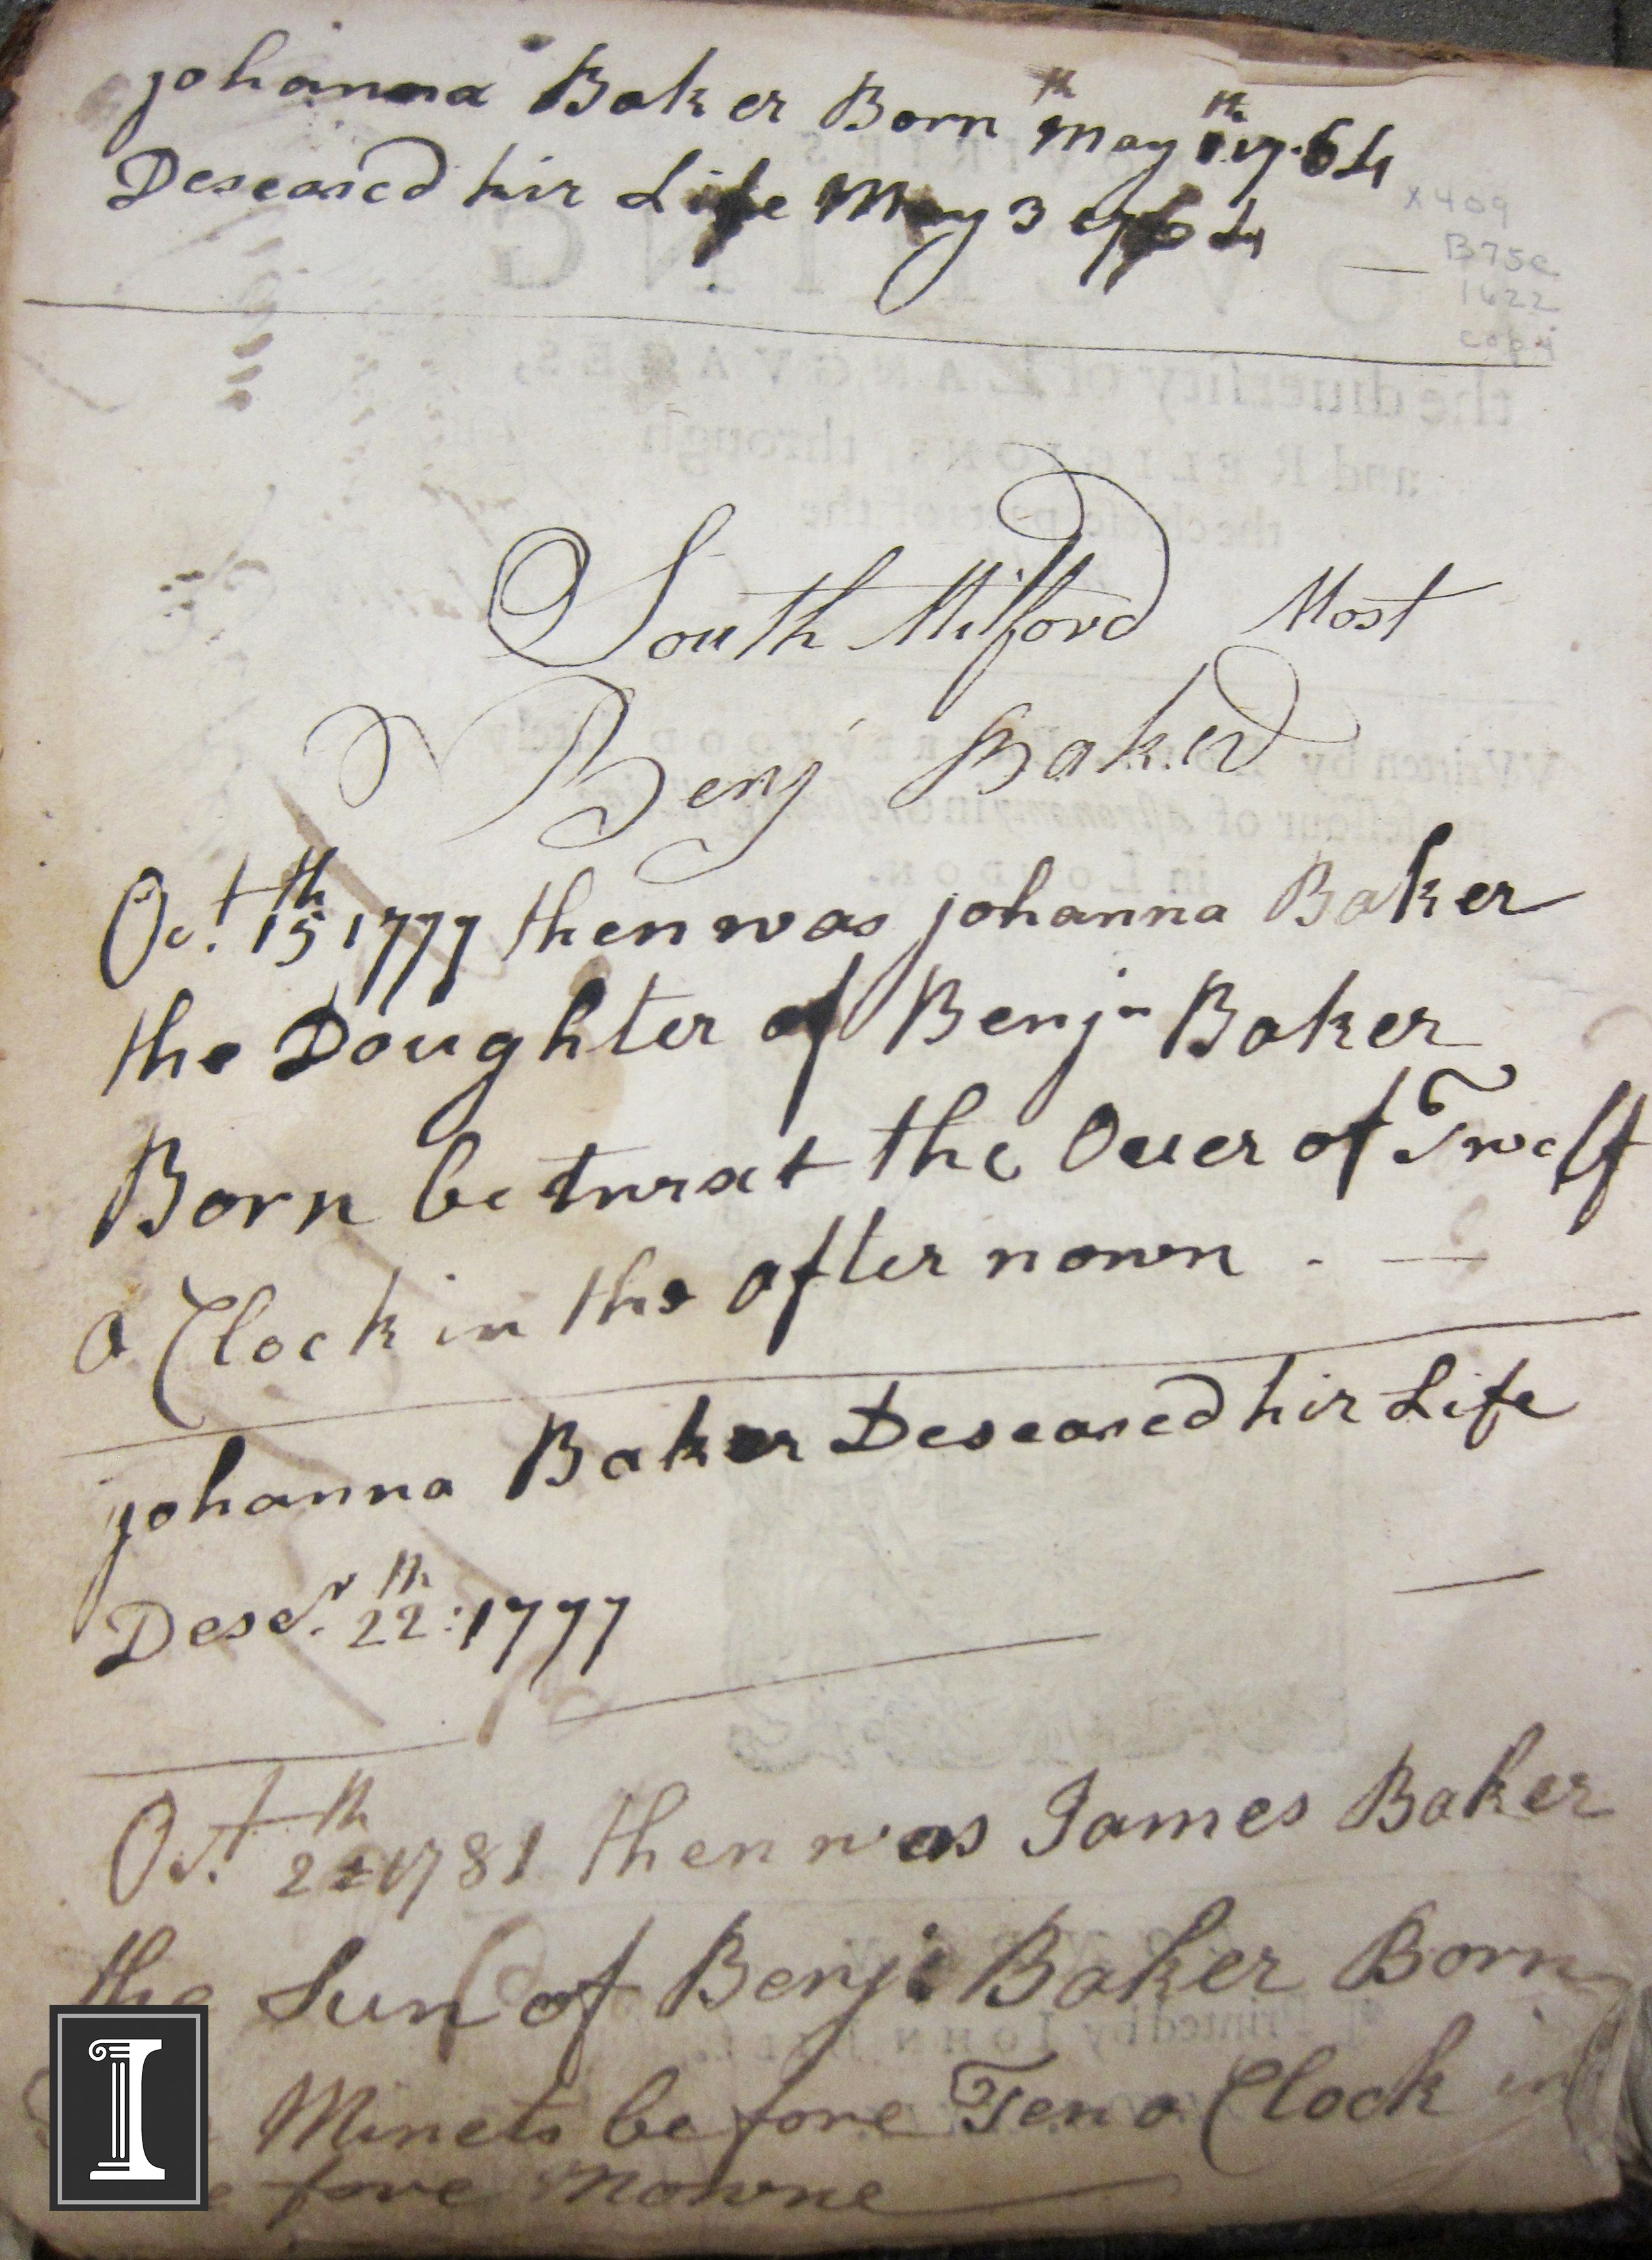 johanna Baker Born May th 1th 17.64
Deseased hir Life May 3 1764
x409
B75e
1622
cop.4
South Milford Most
Benj Baker
Oct. 15th 1777 then was johanna Baker
the Doughter of Benjn Baker
Born beturxt the Ouer of Twelf
o Clock in the after nown . —
johanna Baker Deseased hir Life
Deser. 22th : 1777
Oct. 1781 then was James Baker
the Sun of Benjn Baker Born
Minets before Ten o Clock in
fore Nowne